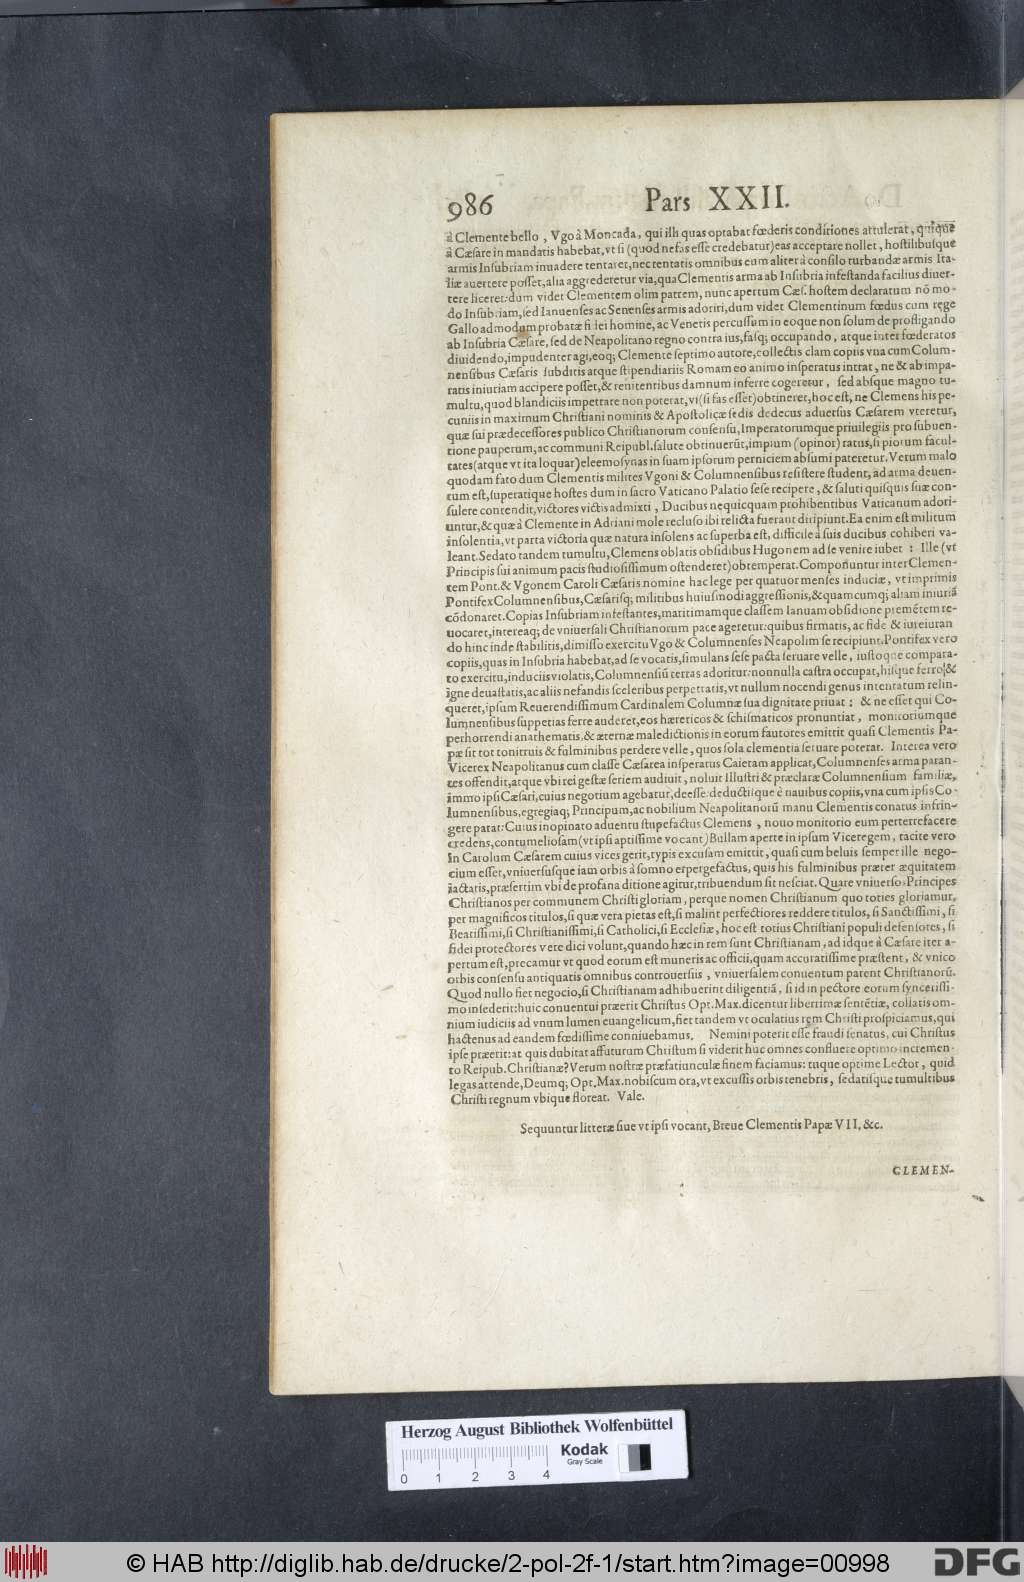 986 Pars XXII.
à Clemente bello, Vgo à Moncada, qui illi quas optabat fœderis conditiones attulerat, quiſque
à Cæſare in mandatis habebat, vt ſi (quod nefas eſſe credebatur) eas acceptare nollet, hoſtilibuſque
armis Inſubriam inuadere tentaret, nec tentatis omnibus eum aliter à conſilo turbandæ armis Ita-
liæ auertere poſſet, alia aggrederetur via, qua Clementis arma ab Inſubria infeſtanda facilius diuer-
tere liceret: dum videt Clementem olim patrem, nunc apertum Cæſ. hoſtem declaratum nō mo-
do Inſubriam, ſed Ianuenſes ac Senenſes armis adoriri, dum videt Clementinum fœdus cum rege
Gallo admodum probatæ fidei homine, ac Venetis percuſſum in eoque non ſolum de profligando
ab Inſubria Cæſare, ſed de Neapolitano regno contra ius, faſq; occupando, atque inter fœderatos
diuidendo, impudenter agi, eoq; Clemente ſeptimo autore, collectis clam copiis vna cum Colum-
nenſibus Cæſaris ſubditis atque ſtipendiariis Romam eo animo inſperatus intrat, ne & ab impa-
ratis iniuriam accipere poſſet, & renitentibus damnum inferre cogeretur, ſed abſque magno tu-
multu, quod blandiciis impetrare non poterat, vi (ſi fas eſſet) obtineret, hoc eſt, ne Clemens his pe-
cuniis in maximum Chriſtiani nominis & Apoſtolicæ ſedis dedecus aduerſus Cæſarem vteretur,
quæ ſui prædeceſſores publico Chriſtianorum conſenſu, Imperatorumque priuilegiis pro ſubuen-
tione pauperum, ac communi Reipubl. ſalute obtinuerūt, impium (opinor) ratus, ſi piorum facul-
tates (atque vt ita loquar) eleemoſynas in ſuam ipſorum perniciem abſumi pateretur. Verum malo
quodam fato dum Clementis milites Vgoni & Columnenſibus reſiſtere ſtudent, ad arma deuen-
tum eſt, ſuperatique hoſtes dum in ſacro Vaticano Palatio ſeſe recipere, & ſaluti quiſquis ſuæ con-
ſulere contendit, victores victis admixti, Ducibus nequicquam prohibentibus Vaticanum adori-
untur, & quæ à Clemente in Adriani mole recluſo ibi relicta fuerant diripiunt. Ea enim eſt militum
inſolentia, vt parta victoria quæ natura inſolens ac ſuperba eſt, difficile à ſuis ducibus cohiberi va-
leant. Sedato tandem tumultu, Clemens oblatis obſidibus Hugonem ad ſe venire iubet: Ille (vt
Principis ſui animum pacis ſtudioſiſſimum oſtenderet) obtemperat. Componuntur inter Clemen-
tem Pont. & Vgonem Caroli Cæſaris nomine hac lege per quatuor menſes induciæ, vt imprimis
Pontifex Columnenſibus, Cæſariſq; militibus huiuſmodi aggreſſionis, & quamcumq; aliam iniuriā
cōdonaret. Copias Inſubriam infeſtantes, maritimamque claſſem Ianuam obſidione premētem re-
uocaret, intereaq; de vniuerſali Chriſtianorum pace ageretur: quibus firmatis, ac fide & iureiuran
do hinc inde ſtabilitis, dimiſſo exercitu Vgo & Columnenſes Neapolim ſe recipiunt. Pontifex vero
copiis, quas in Inſubria habebat, ad ſe vocatis, ſimulans ſeſe pacta ſeruare velle, iuſtoque compara-
to exercitu, induciis violatis, Columnenſiū terras adoritur: nonnulla caſtra occupat, hiſque ferro &
igne deuaſtatis, ac aliis nefandis ſceleribus perpetratis, vt nullum nocendi genus intentatum relin-
queret, ipſum Reuerendiſſimum Cardinalem Columnæ ſua dignitate priuat: & ne eſſet qui Co-
lumnenſibus ſuppetias ferre auderet, eos hæreticos & ſchiſmaticos pronuntiat, monitoriumque
perhorrendi anathematis, & æternæ maledictionis in eorum fautores emittit quaſi Clementis Pa-
pæ ſit tot tonitruis & fulminibus perdere velle, quos ſola clementia ſeruare poterat. Interea vero
Vicerex Neapolitanus cum claſſe Cæſarea inſperatus Caietam applicat, Columnenſes arma paran-
tes offendit, atque vbi rei geſtæ ſeriem audiuit, noluit Illuſtri & præclaræ Columnenſium familiæ,
immo ipſi Cæſari, cuius negotium agebatur, deeſſe: deductiſque è nauibus copiis, vna cum ipſis Co-
lumnenſibus, egregiaq; Principum, ac nobilium Neapolitanorū manu Clementis conatus infrin-
gere parat: Cuius inopinato aduentu ſtupefactus Clemens, nouo monitorio eum perterrefacere
credens, contumelioſam (vt ipſi aptiſſime vocant) Bullam aperte in ipſum Viceregem, tacite vero
in Carolum Cæſarem cuius vices gerit, typis excuſam emittit, quaſi cum beluis ſemper ille nego-
cium eſſet, vniuerſuſque iam orbis à ſomno erpergefactus, quis his fulminibus præter æquitatem
iactatis, præſertim vbi de profana ditione agitur, tribuendum ſit neſciat. Quare vniuerſos Principes
Chriſtianos per communem Chriſti gloriam, perque nomen Chriſtianum quo toties gloriamur,
per magnificos titulos, ſi quæ vera pietas eſt, ſi malint perfectiores reddere titulos, ſi Sanctiſſimi, ſi
Beatiſſimi, ſi Chriſtianiſſimi, ſi Catholici, ſi Eccleſiæ, hoc eſt totius Chriſtiani populi defenſores, ſi
fidei protectores vere dici volunt, quando hæc in rem ſunt Chriſtianam, ad idque à Cæſare iter a-
pertum eſt, precamur vt quod eorum eſt muneris ac officii, quam accuratiſſime præſtent, & vnico
orbis conſenſu antiquatis omnibus controuerſiis, vniuerſalem conuentum parent Chriſtianorū.
Quod nullo fiet negocio, ſi Chriſtianam adhibuerint diligentiā, ſi id in pectore eorum ſynceriſſi-
mo inſederit: huic conuentui præerit Chriſtus Opt. Max. dicentur liberrimæ ſentētiæ, collatis om-
nium iudiciis ad vnum lumen euangelicum, fiet tandem vt oculatius rem Chriſti proſpiciamus, qui
hactenus ad eandem fœdiſſime conniuebamus. Nemini poterit eſſe fraudi ſenatus, cui Chriſtus
ipſe præerit: at quis dubitat affuturum Chriſtum ſi viderit huc omnes confluere optimo incremen-
to Reipub. Chriſtianæ? Verum noſtræ præfatiunculæ finem faciamus: tuque optime Lector, quid
legas attende, Deumq; Opt. Max. nobiſcum ora, vt excuſſis orbis tenebris, ſedatiſque tumultibus
Chriſti regnum vbique floreat. Vale.
Sequuntur litteræ ſiue vt ipſi vocant, Breue Clementis Papæ VII, &c.
CLEMEN-
Herzog August Bibliothek Wolfenbüttel
Kodak
Gray Scale
0 1 2 3 4
© HAB http://diglib.hab.de/drucke/2-pol-2f-1/start.htm?image=00998
DFG